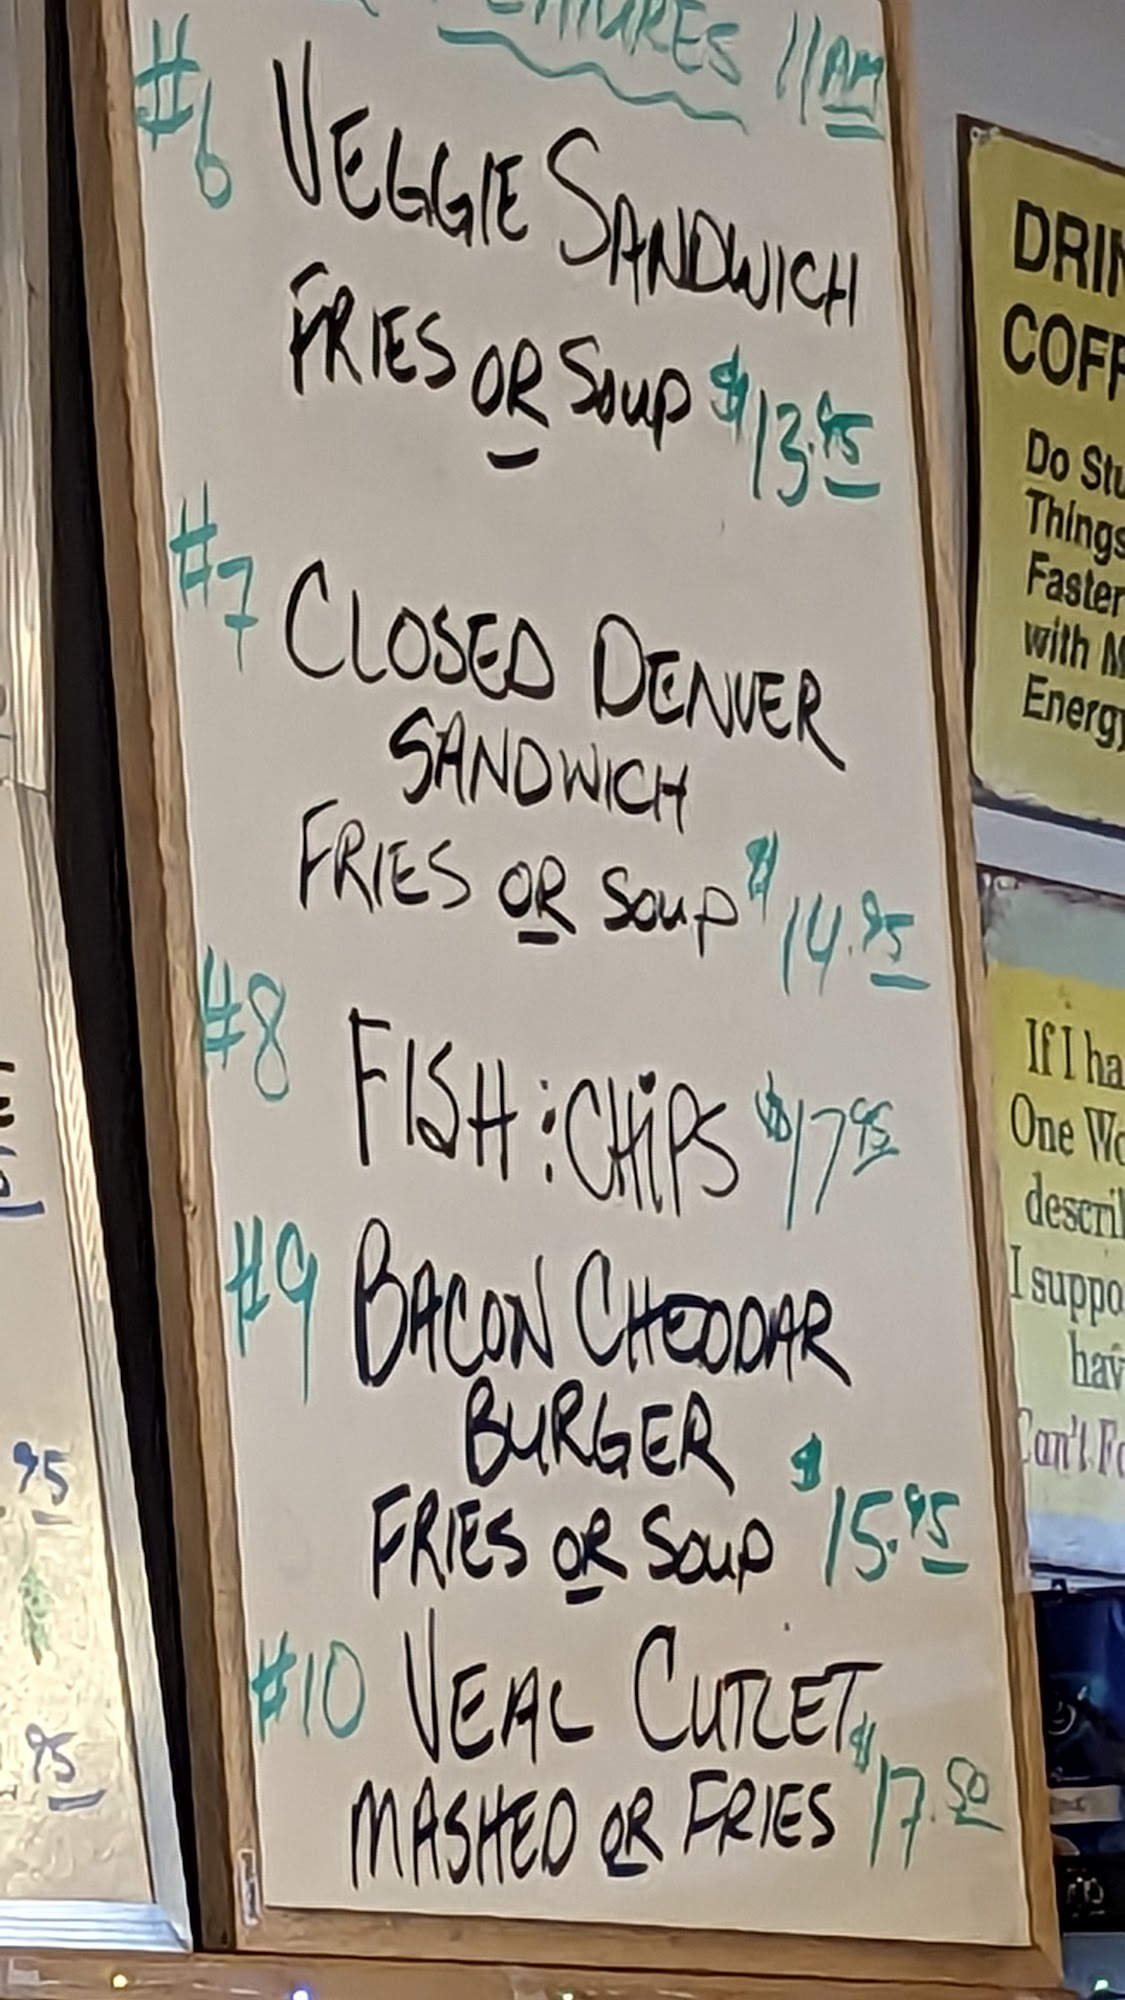 11AM
#6 VEGGIE SANDWICH
FRIES OR SOUP $13.95
#7 CLOSED DENVER
SANDWICH
FRIES OR SOUP $14.95
#8 FISH : CHIPS $17.95
#9 BACON CHEDDAR
BURGER
FRIES OR SOUP $15.95
#10 VEAL CUTLET
MASHED OR FRIES $17.50
.95
.95
DRIN
COFF
Do Stu
Things
Faster
with M
Energy
If I ha
One Wo
describ
I suppo
hav
Can't Fo